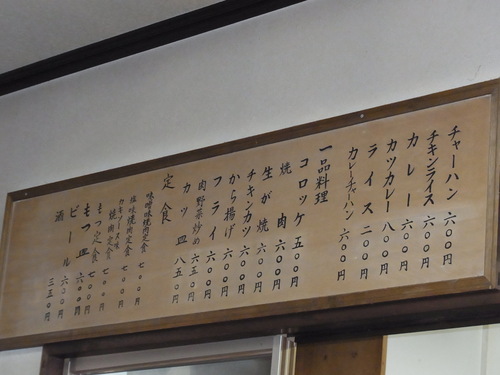 チャーハン 六〇〇円
チキンライス 六〇〇円
カレー 六〇〇円
カツカレー 八〇〇円
ライス 二〇〇円
カレーチャーハン 六〇〇円
一品料理
コロッケ 五〇〇円
焼肉 六〇〇円
生が焼 六〇〇円
チキンカツ 六〇〇円
から揚げ 六〇〇円
フライ 六〇〇円
肉野菜炒め 六五〇円
カツ皿 八五〇円
定食
味噌味焼肉定食 七〇〇円
塩味焼肉定食 七〇〇円
焼肉定食 七〇〇円
もつ定食 七〇〇円
もつ皿 六〇〇円
ビール 六〇〇円
酒 三五〇円